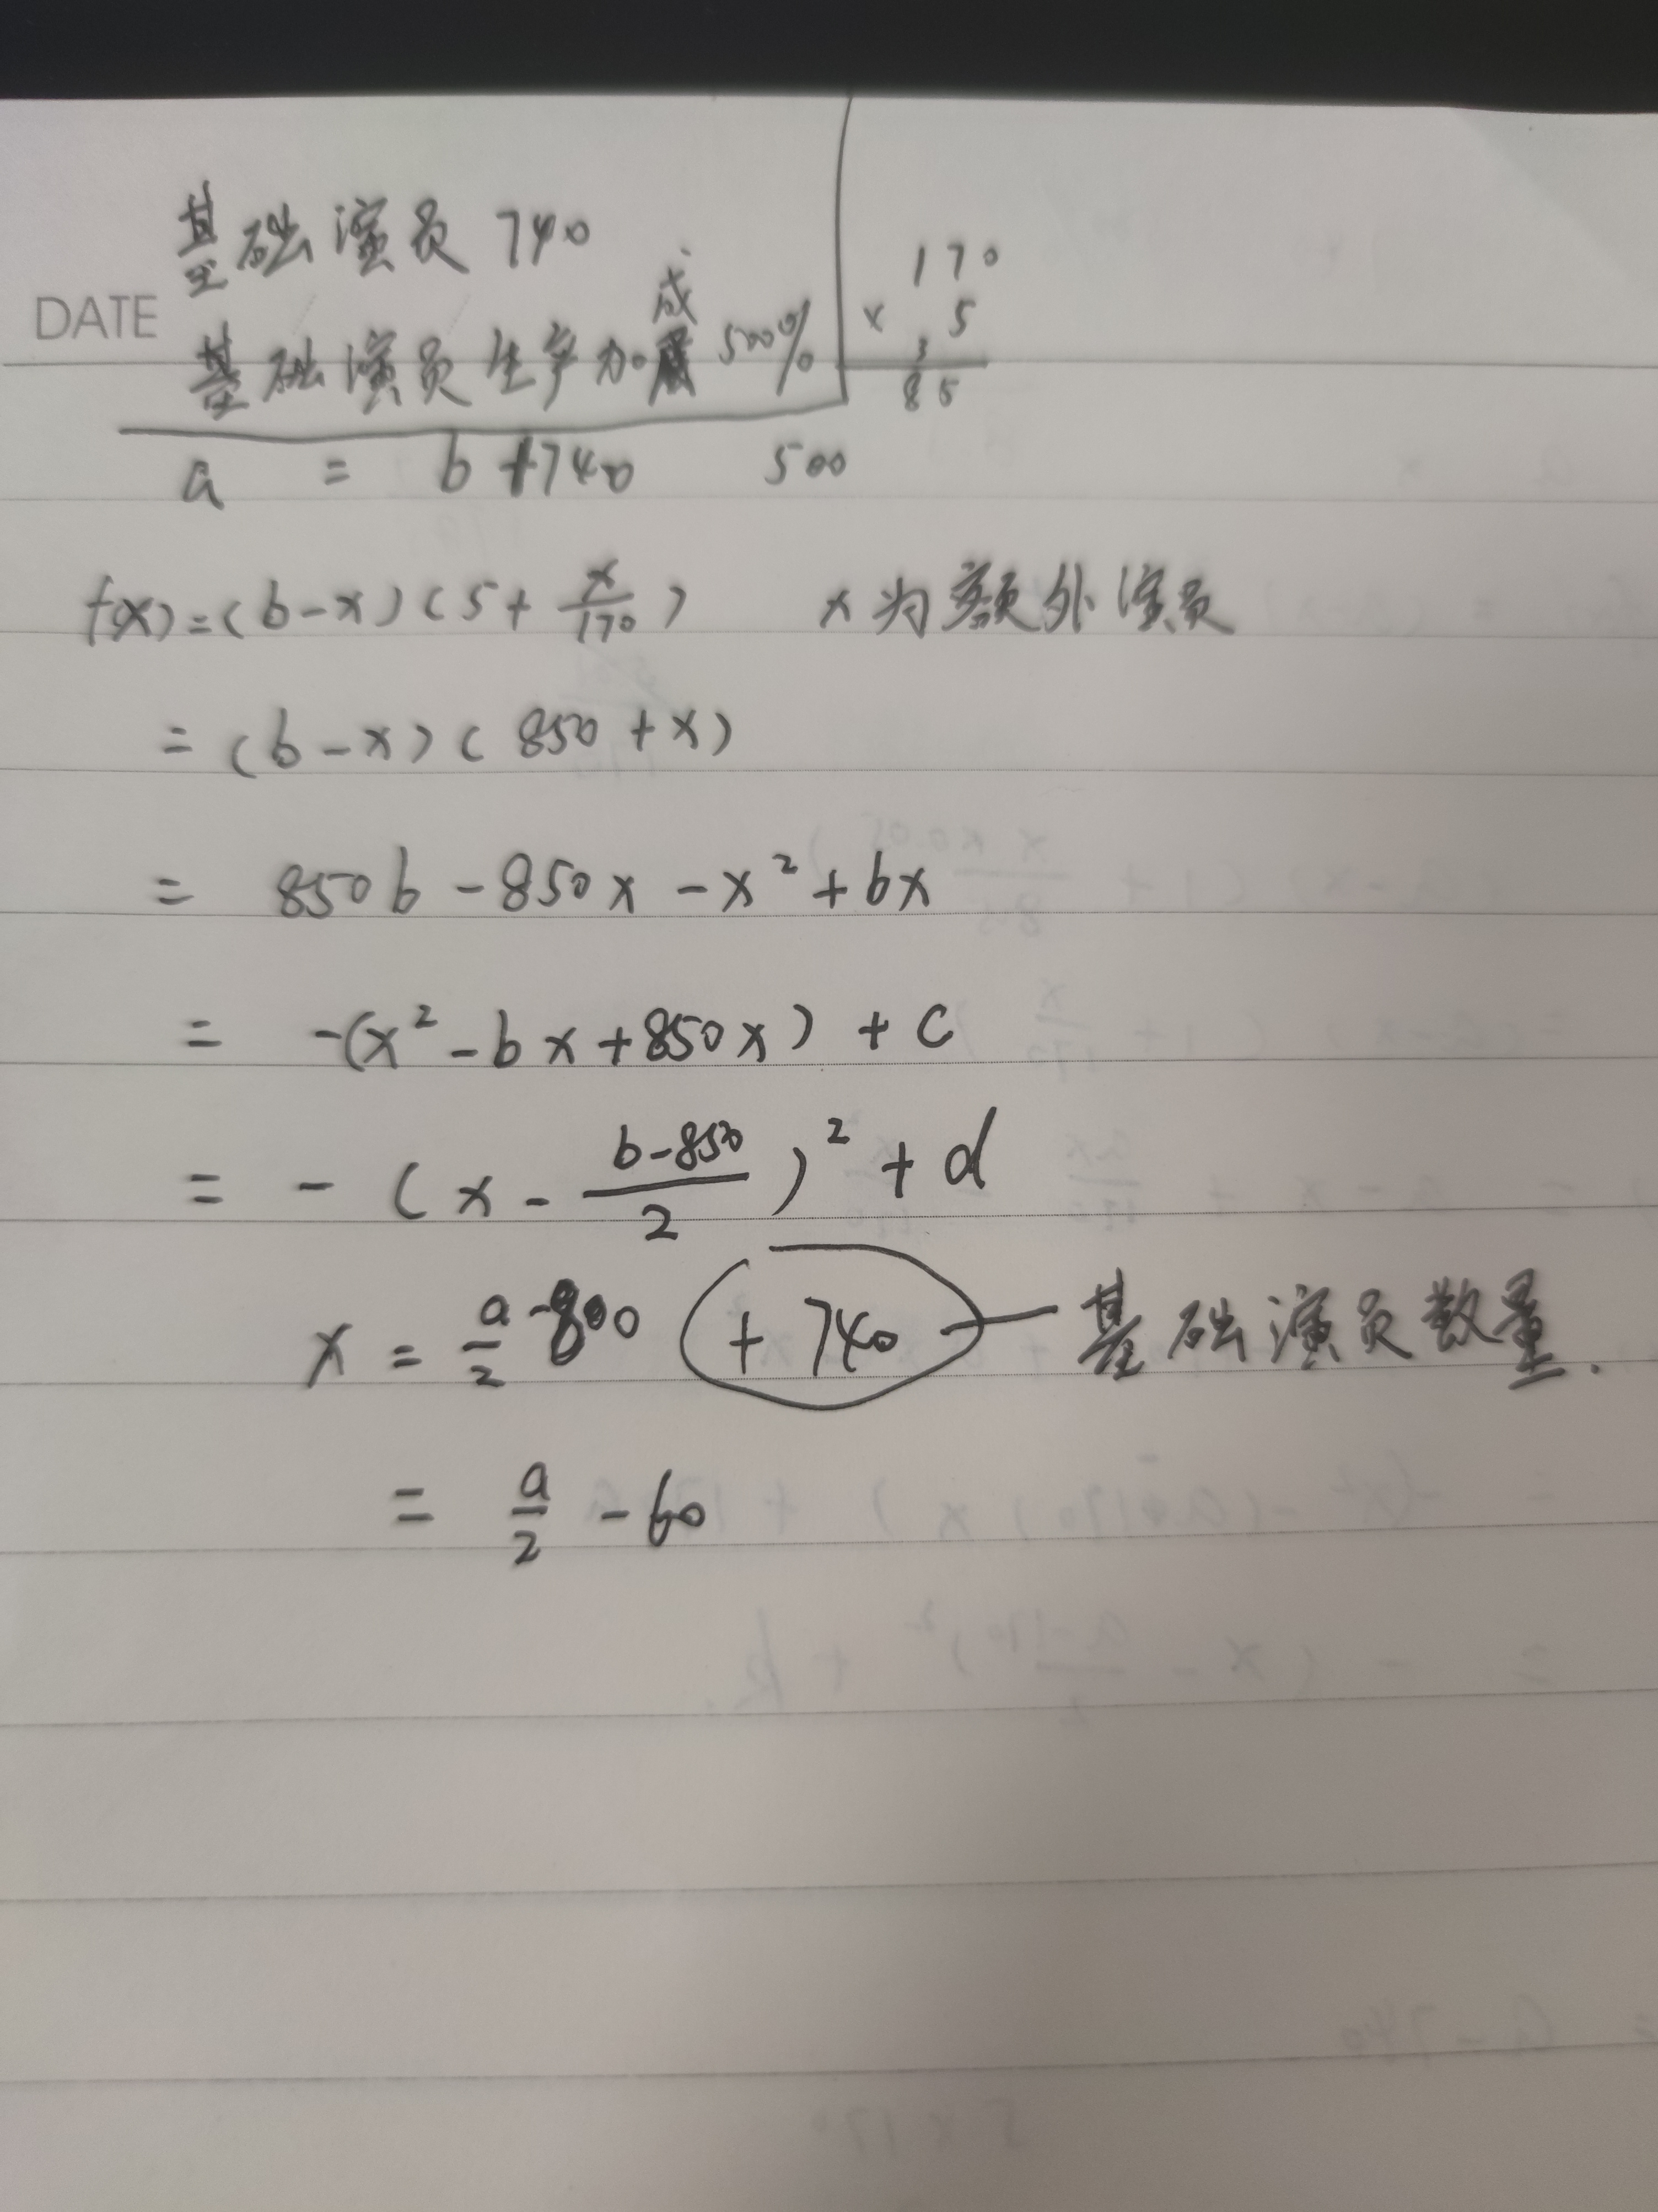 基础演员 740
DATE
基础演员生产加成 500%
170
× 5
3
85
a = b + 740 500
f(x) = (b-x)(5+x/170) x为额外演员
= (b-x)(850+x)
= 850b-850x-x²+bx
= -(x²-bx+850x)+c
= -(x-(b-850)/2)²+d
x = a/2 -800 + 740 — 基础演员数量.
= a/2 -60